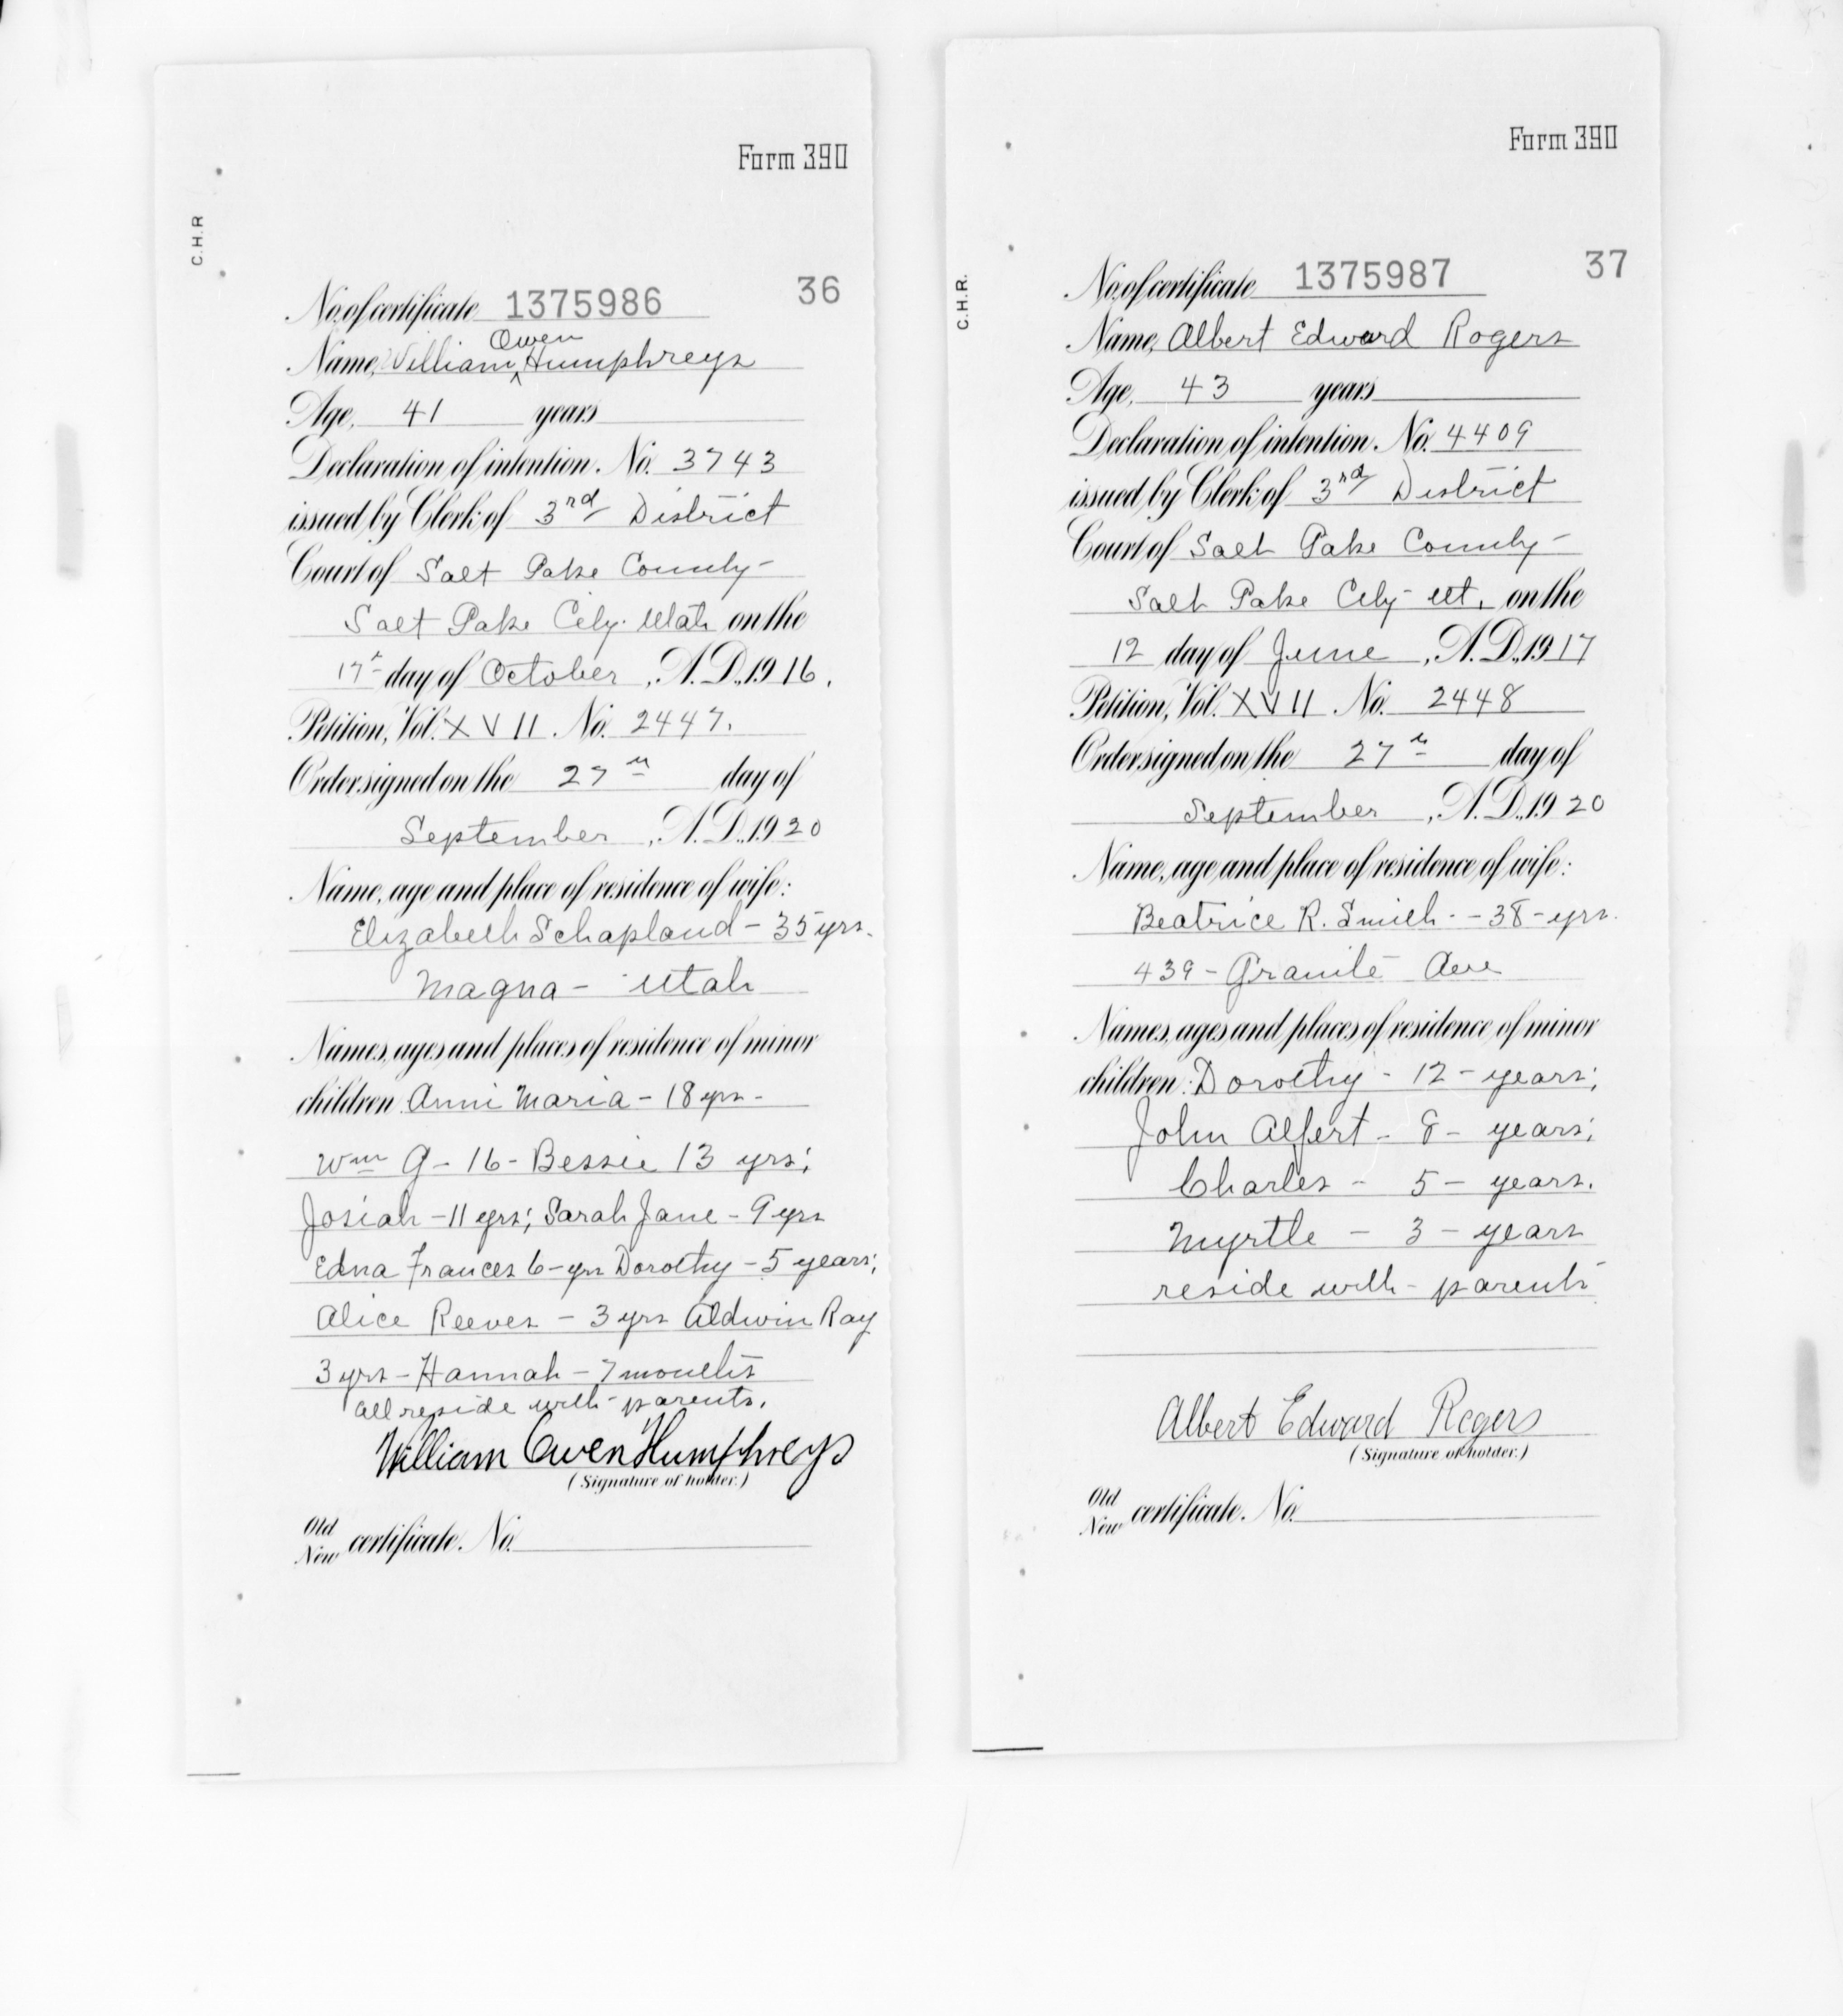 Form 390
C.H.R
36
No. of certificate 1375986
Owen
Name, William ^ Humphreys
Age, 41 years
Declaration of intention. No. 3743
issued by Clerk of 3rd District
Court of Salt Lake County-
Salt Lake City. Utah on the
17th day of October, A.D., 1916.
Petition, Vol. XVII. No. 2447.
Order signed on the 27th day of
September, A.D., 1920
Name, age and place of residence of wife:
Elizabeth Schapland - 35 yrs.
Magna - Utah
Names, ages and places of residence of minor
children Anni Maria - 18 yrs -
Wm G - 16 - Bessie 13 yrs;
Josiah - 11 yrs; Sarah Jane - 9 yrs
Edna Frances 6 - yrs Dorothy - 5 years;
Alice Reeves - 3 yrs Aldwin Ray
3 yrs - Hannah - 7 months
all reside with - parents.
William Owen Humphreys
(Signature of holder.)
Old
New certificate. No.
Form 390
C.H.R.
37
No. of certificate 1375987
Name, Albert Edward Rogers
Age, 43 years
Declaration of intention. No. 4409
issued by Clerk of 3rd District
Court of Salt Lake County -
Salt Lake City - Ut. on the
12 day of June, A.D., 1917
Petition, Vol. XVII No. 2448
Order signed on the 27th day of
September, A.D., 1920
Name, age and place of residence of wife:
Beatrice R. Smith - - 38 - yrs.
439 - Granite Ave
Names, ages and places of residence of minor
children: Dorothy - 12 - years;
John Alfert - 8 - years;
Charles - 5 - years.
Myrtle - 3 - years
reside with - parents
Albert Edward Rogers
(Signature of holder.)
Old
New certificate. No.